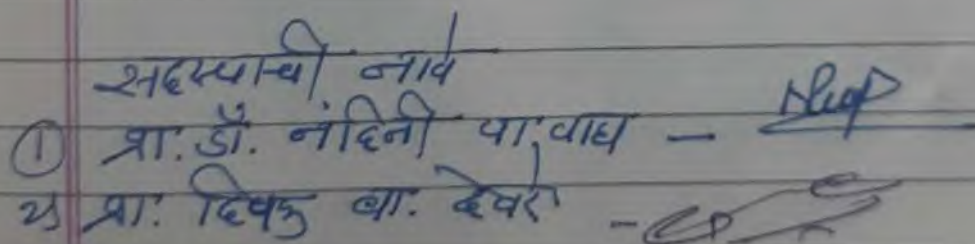 सदस्याची नावे
① प्रा. डॉ. नंदिनी पा. वाघ -
२) प्रा. दिपक बा. देवरे -